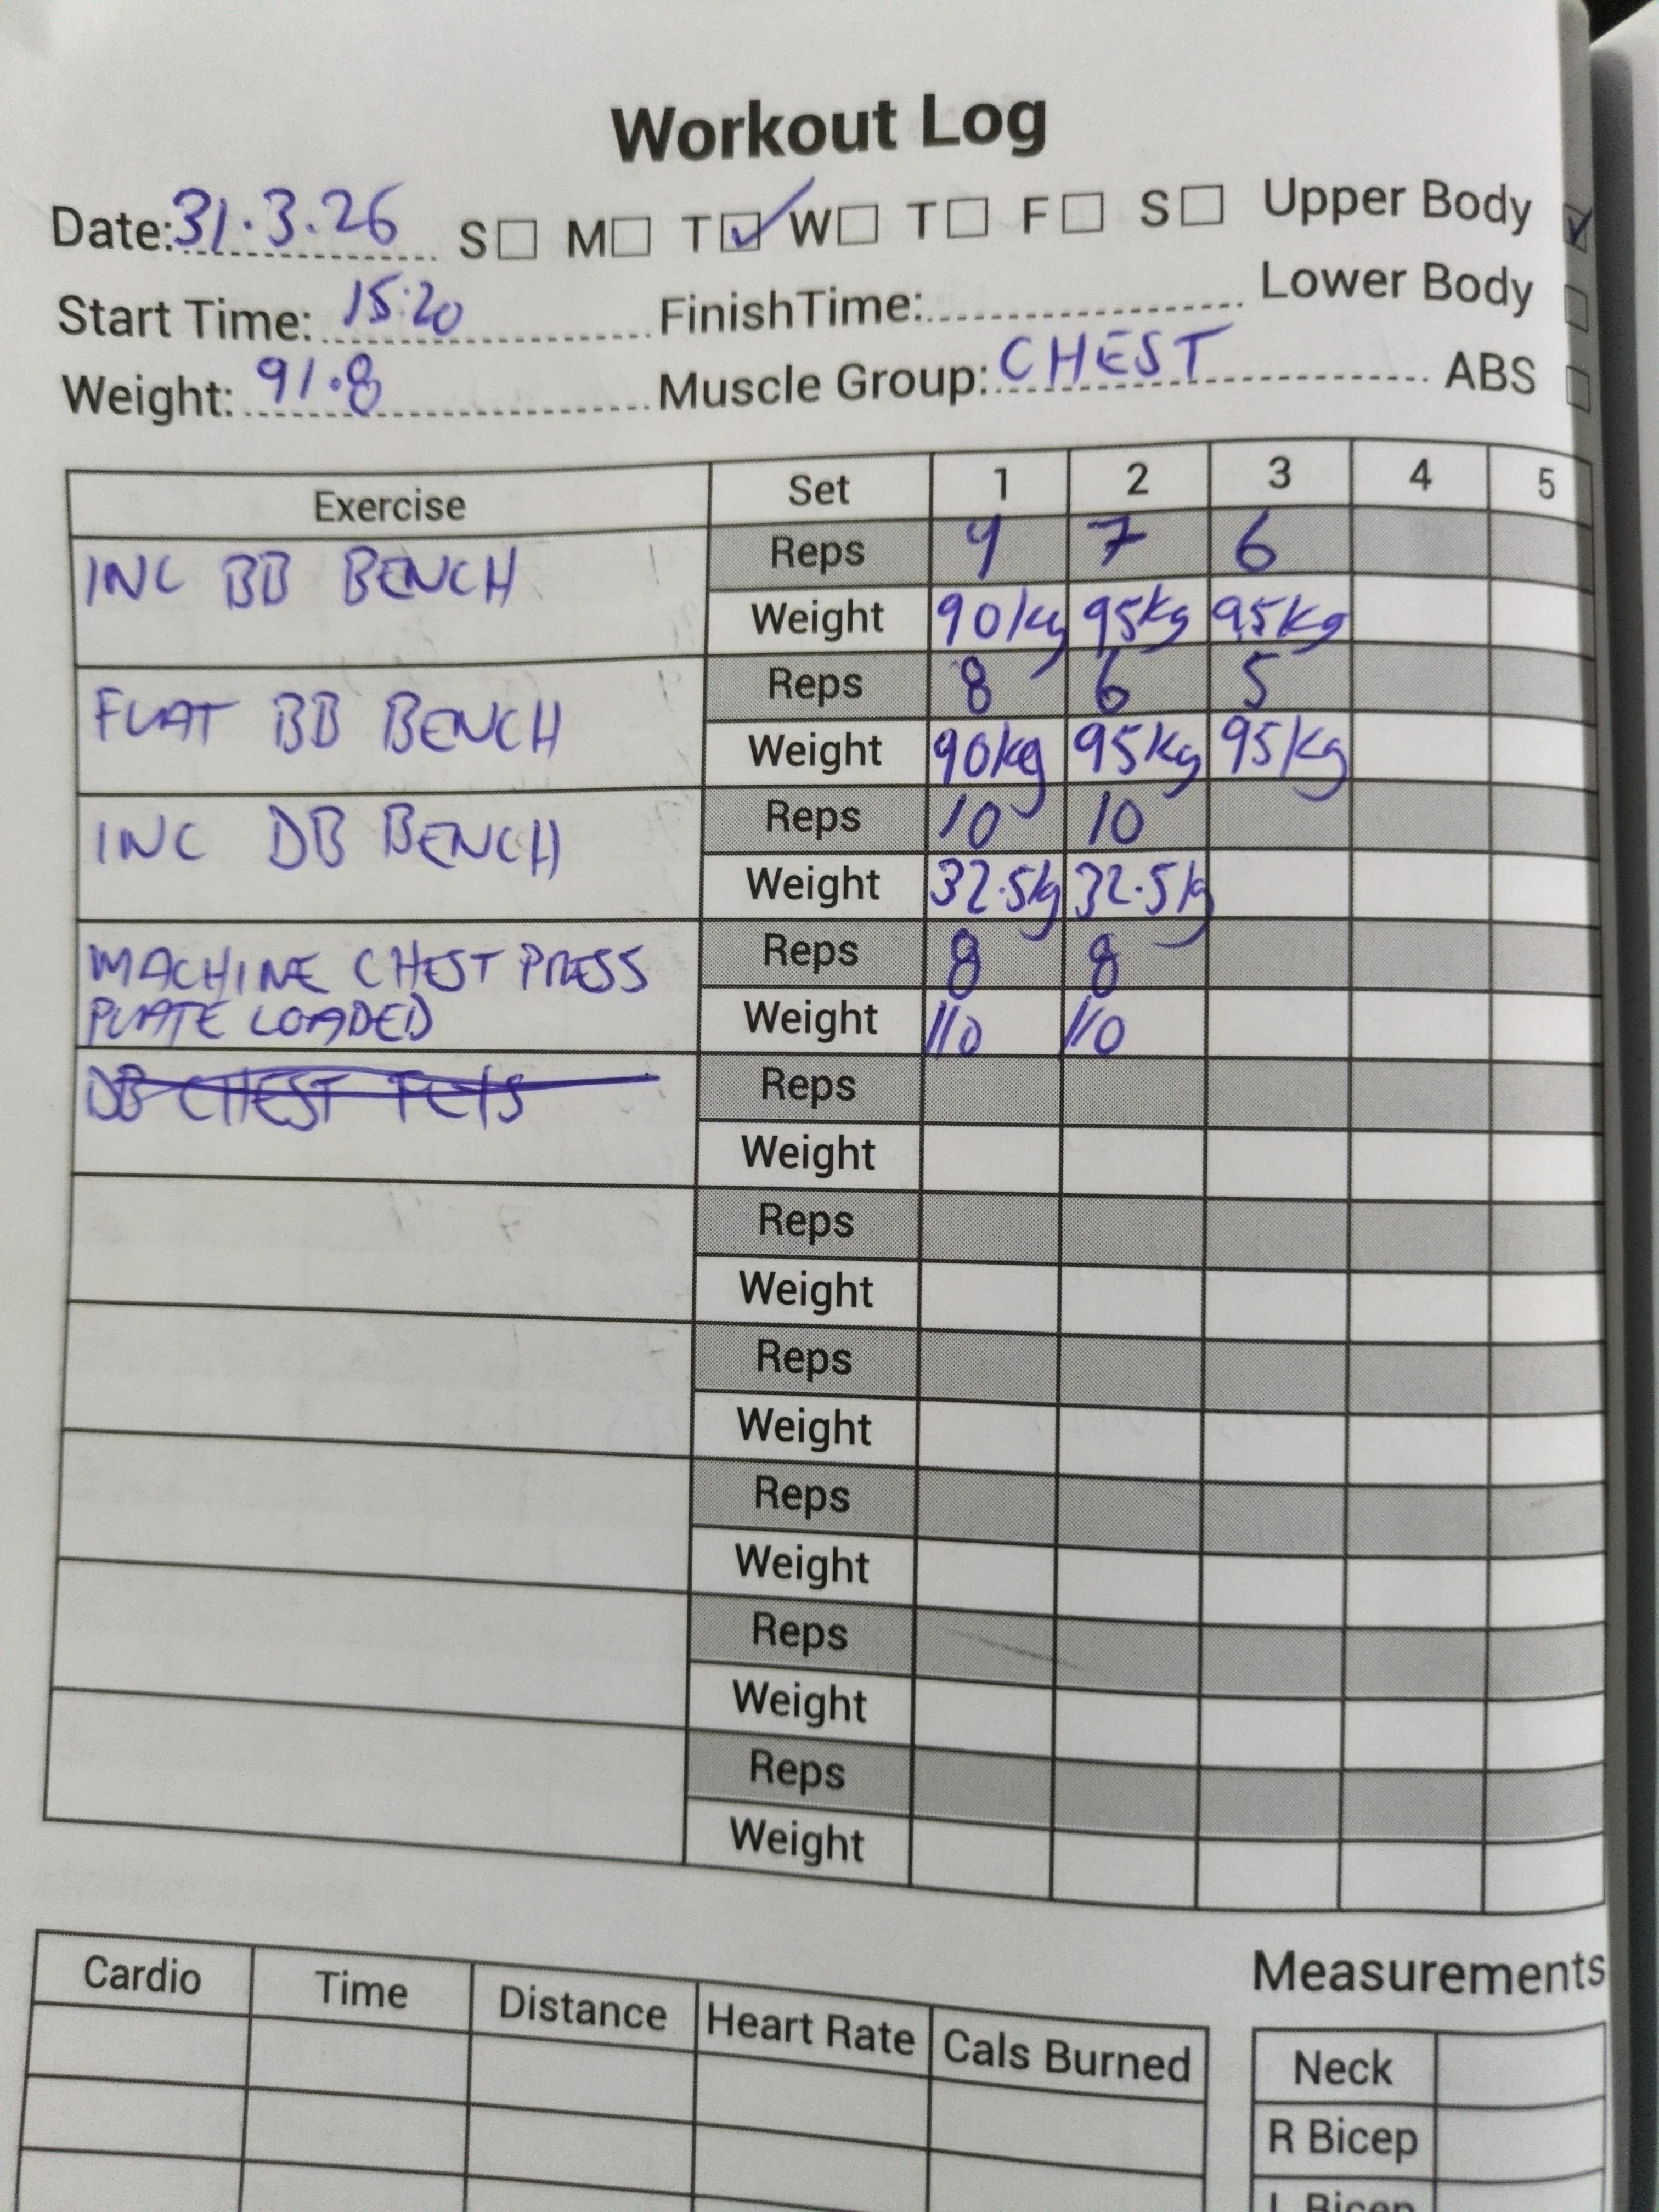 Workout Log
Date: 31.3.26 S M T ✓ W T F S Upper Body ✓
Start Time: 15:20 FinishTime: Lower Body
Weight: 91.8 Muscle Group: CHEST ABS
Exercise Set 1 2 3 4 5
INC BB BENCH Reps 9 7 6
Weight 90kg 95kg 95kg
FLAT BB BENCH Reps 8 6 5
Weight 90kg 95kg 95kg
INC DB BENCH Reps 10 10
Weight 32.5kg 32.5kg
MACHINE CHEST PRESS Reps 8 8
PLATE LOADED Weight 110 110
DB CHEST FLYS Reps
Weight
Reps
Weight
Reps
Weight
Reps
Weight
Reps
Weight
Reps
Weight
Measurements
Cardio Time Distance Heart Rate Cals Burned
Neck
R Bicep
L Bicep